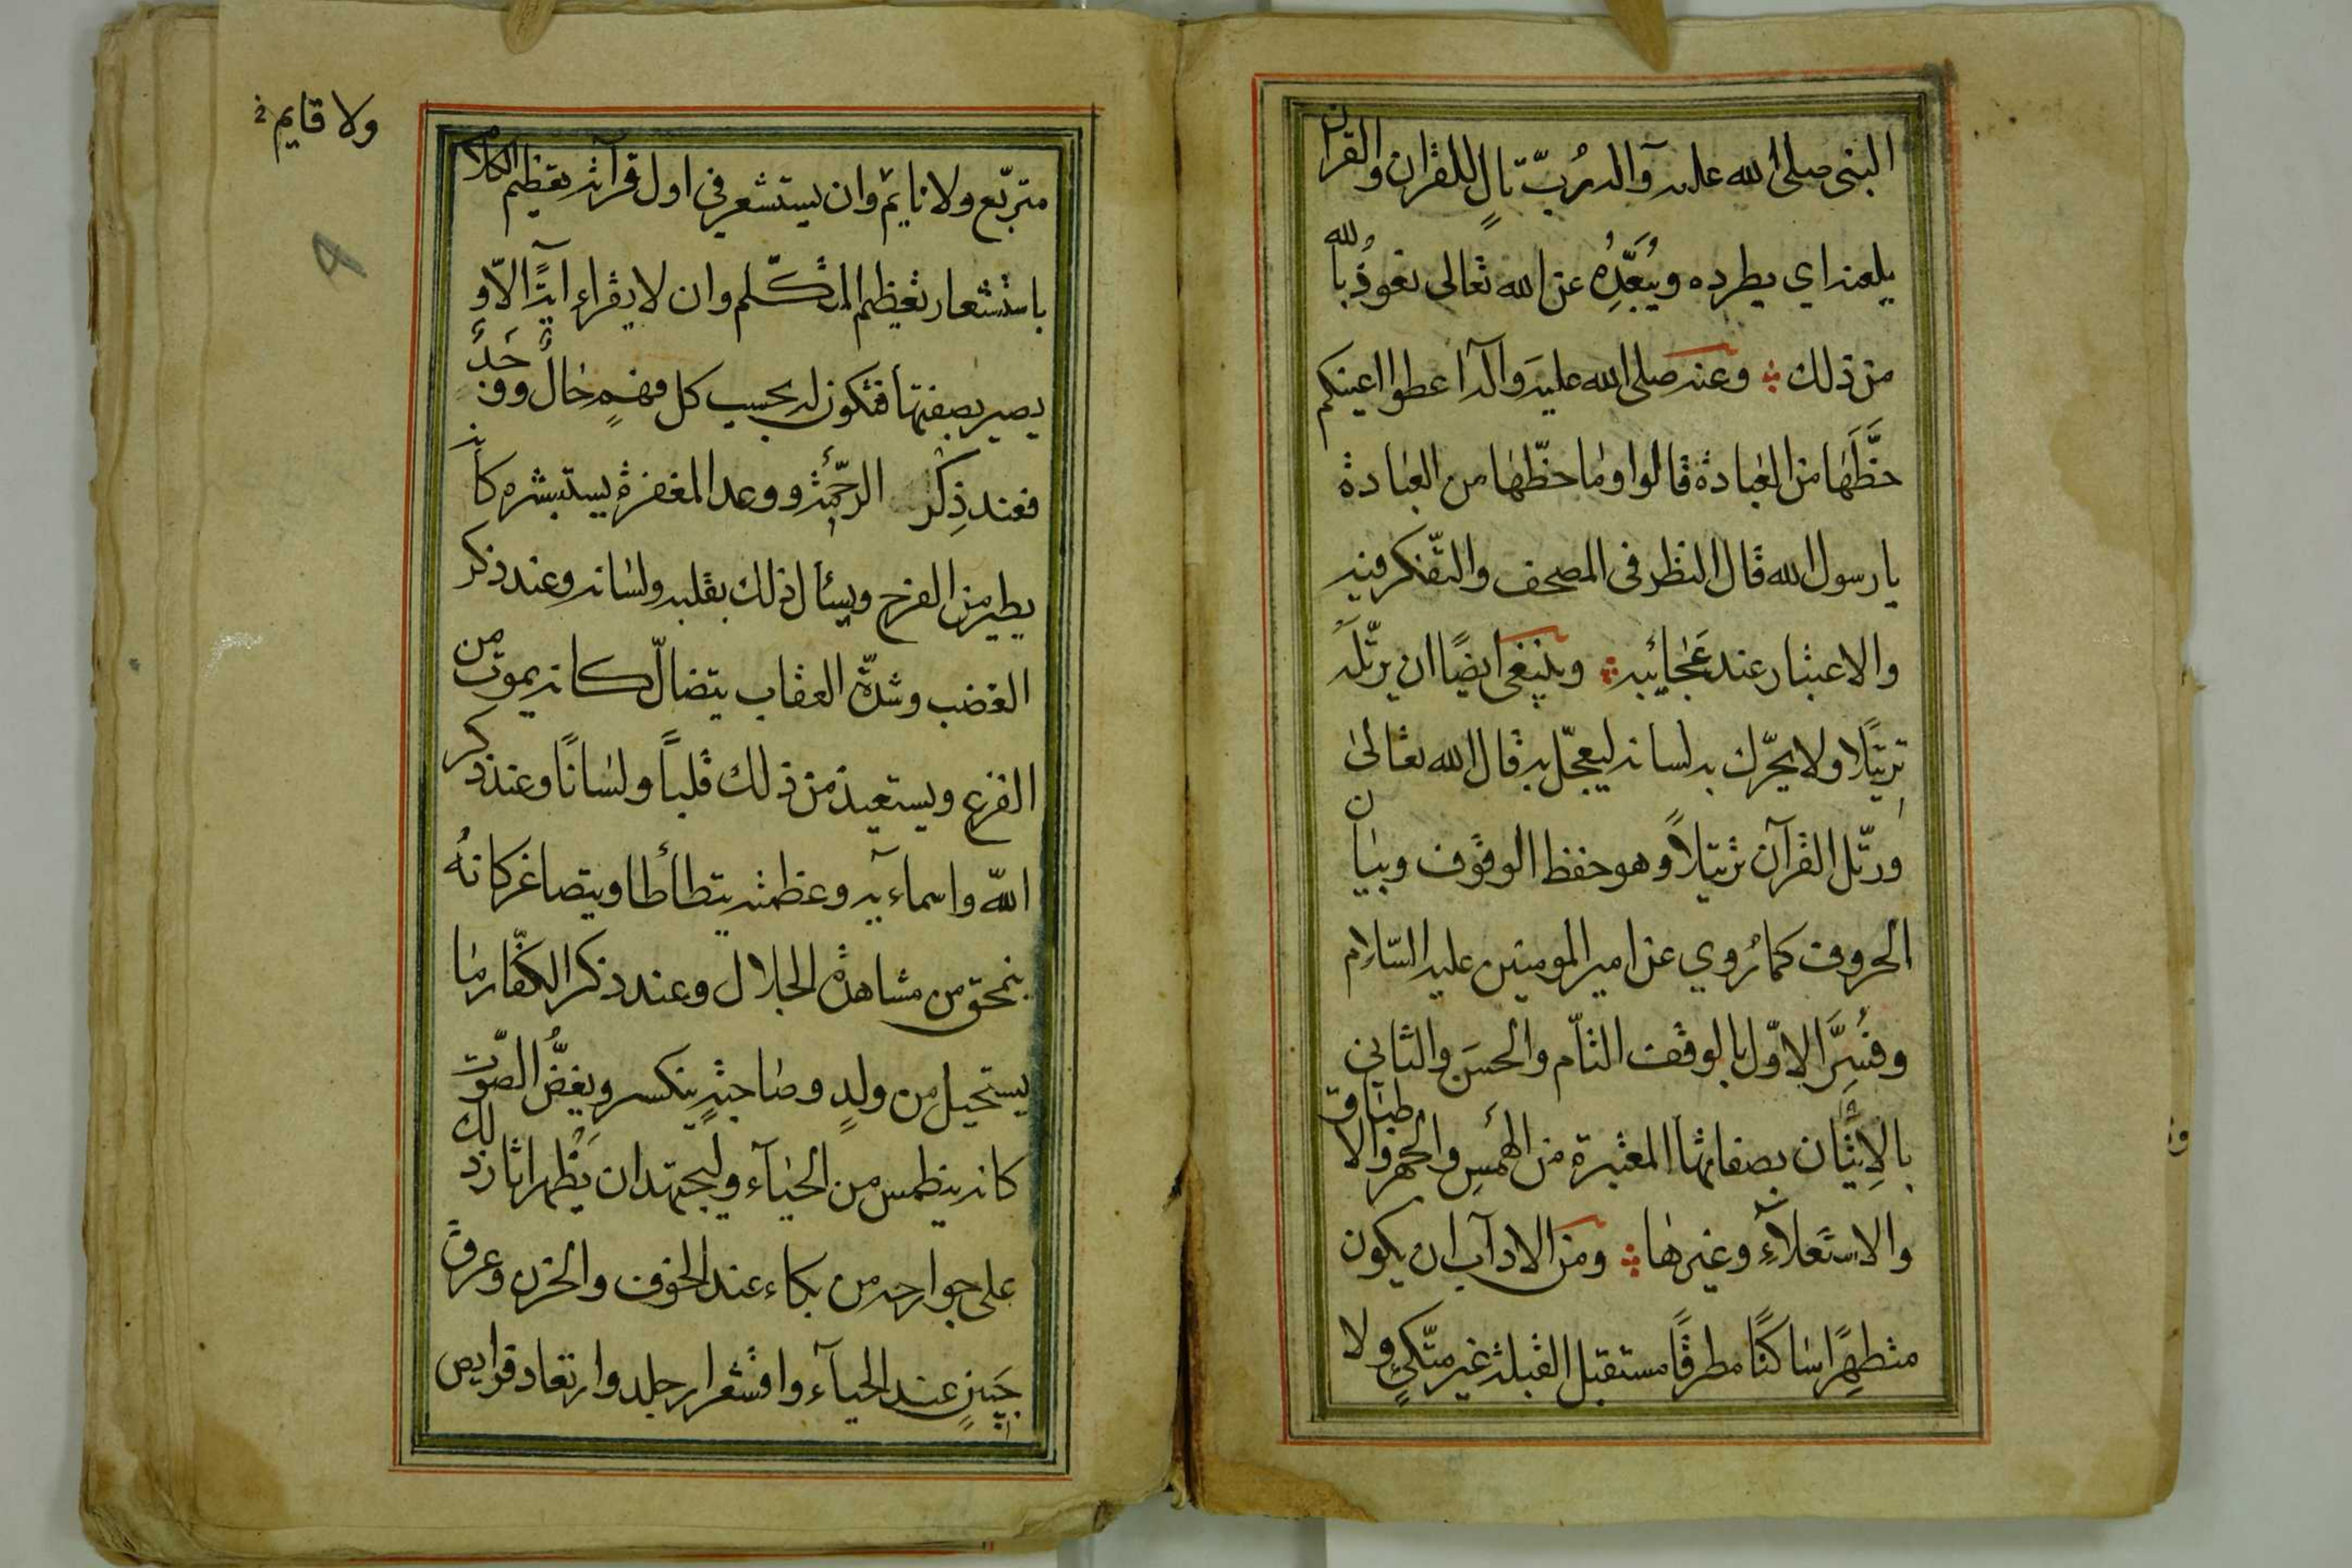 النبى صلى الله عليه وآله رُبّ تالٍ للقران والقران
يلعنه اي يطرده ويُبَعِّدُه عن الله تعالى نعوذُ بالله
من ذلك وعنه صلى الله عليه وآله اعطوا اعينكم
حظَّهَا من العبادة قالوا وما حظّها من العبادة
يا رسول الله قال النظر فى المصحف والتفّكر فيه
والاعتبار عند عَجائبه وينبغى ايضًا ان يرتّلَه
تِرتيًلا ولا يحّرك به لسانه ليعجّل به قال الله تعالىٰ
ورتّل القرآن ترتيلاً وهو حفظ الوقوف وبيان
الحروف كما رُوي عن امير المومنين عليه السّلام
وفُسِّرَ الاوّل بالوقف التاّم والحسَن والثاني
بالاِتيَان بصفاتها المعتبرة من الهَمسِ والجهر والاطباق
والاستعلآءِ وغيرها ومن الادآب ان يكون
متطهِرًا ساكنًا مطرقًا مستقبل القبلة غير متّكىٍ ولا
ولا قايم
متربّع ولا نايم وان يستشعر فى اول قرآئته تعظيم الكلام
باستشعار تعظيم المتكّلم وان لا يقراء ايةً الاّ و
يصير بصفتها فتكون له بحسب كل فهمٍ حالٌ ووَجدٌ
فعند ذِكر الرحَمة ووعد المغفرة يستبشر كانه
يطير من الفرح ويسأل ذلك بقلبه ولسانه وعند ذكر
الغضب وشدّة العقاب يتضالّ كانه يموت من
الفزع ويستعيذ من ذلك قلباً ولسَانًا وعند ذكر
اللّه واسماءيه وعظمته يتطأطا ويتصاغر كانهُ
ينمحق من مشاهدة الجلال وعند ذكر الكفّار ما
يستحيل من ولدٍ وصَاحبةٍ ينكسر ويغضُّ الصّوت
كانه ينطمس من الحيَآء وليجتهد ان يَظهر اثار ذلك
على جوارحه من بكاء عند الخوف والحزن وعرق
جَبينٍ عند الحيآء واقشعرار جلد وارتعاد فرايص